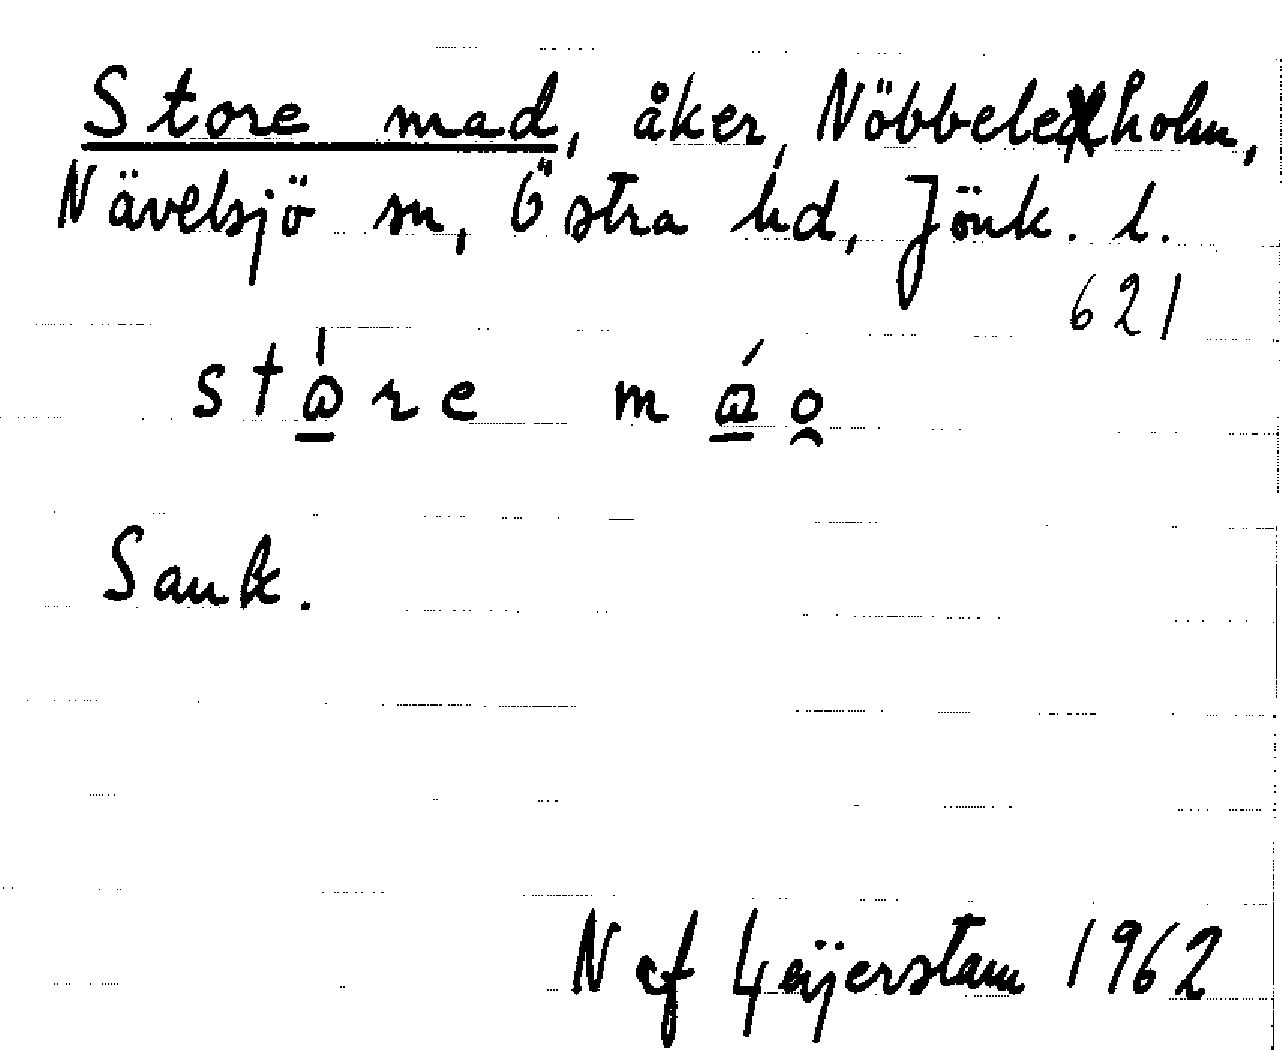 Store mad, åker, Nöbbeleholm,
Nävelsjö sn, Östra hd, Jönk. l.
621
Sank.
N af Geijerstam 1962